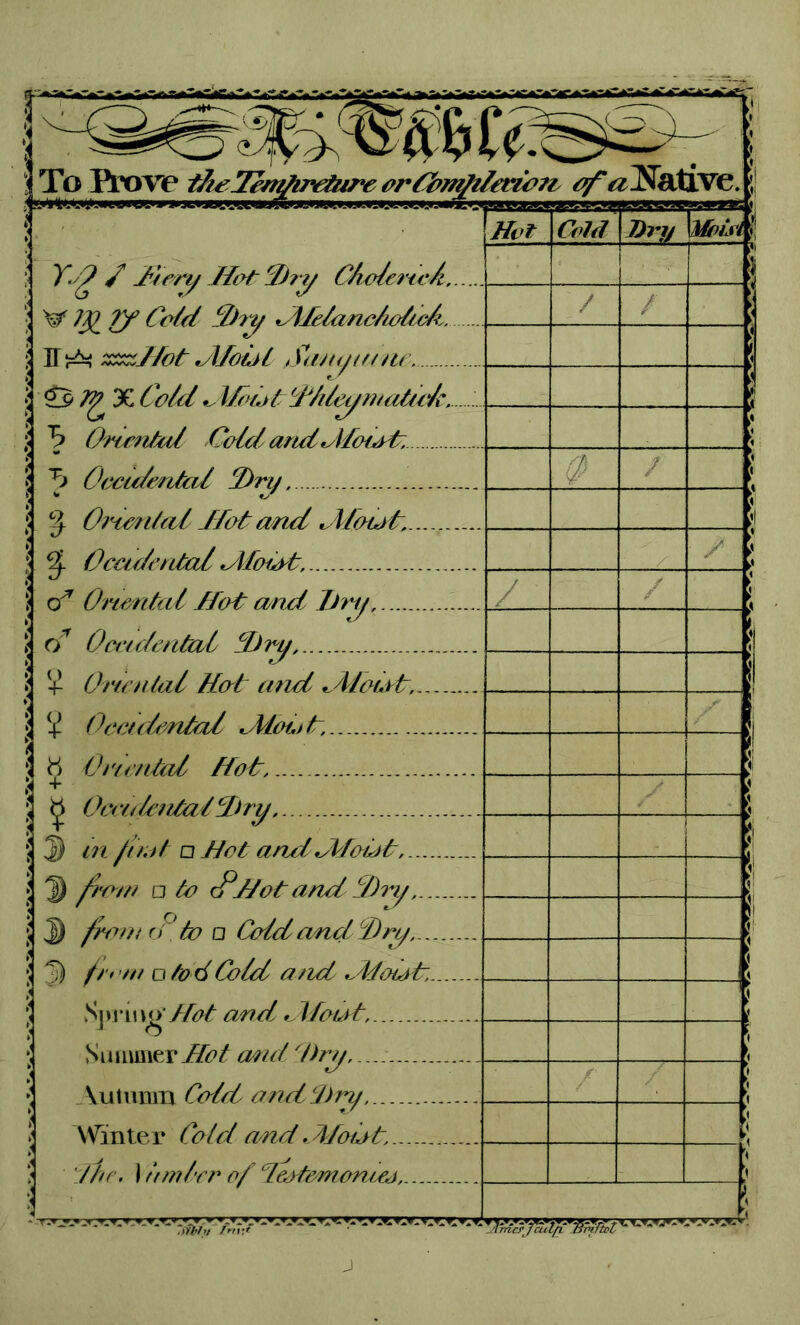 A Table
To Prove the Tempreture or Complexion of a Native.
Hot Cold Dry Moist
♈ ♌ ♐ Fiery Hot Dry Cholerick,
♉ ♍ ♑ Cold Dry Melancholick, / /
♊ ♎ ♒ Hot Moist Sanguine,
♋ ♏ ♓ Cold Moist Phlegmatick,
♄ Oriental Cold and Moist,
♄ Occidental Dry, /
♃ Oriental Hot and Moist,
♃ Occidental Moist, /
♂ Oriental Hot and Dry, / /
♂ Occidental Dry,
♀ Oriental Hot and Moist,
♀ Occidental Moist, /
☿ Oriental Hot,
☿ Occidental Dry, /
☽ in first □ Hot and Moist,
☽ from □ to ☍ Hot and Dry,
☽ from ☍ to □ Cold and Dry,
☽ from □ to ☌ Cold and Moist,
Spring Hot and Moist,
Summer Hot and Dry,
Autumn Cold and Dry, / /
Winter Cold and Moist,
The Number of Testemonies,
Sibly Invt Ames sculp Bristol